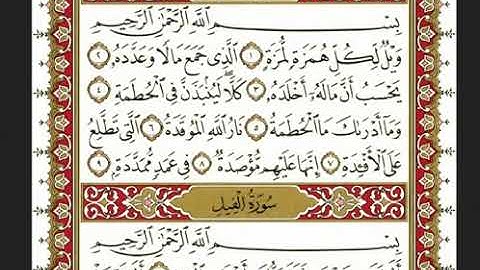 بِسْمِ اللَّهِ الرَّحْمَٰنِ الرَّحِيمِ
وَيْلٌ لِكُلِّ هُمَزَةٍ لُمَزَةٍ ١ الَّذِي جَمَعَ مَالًا وَعَدَّدَهُ ٢
يَحْسَبُ أَنَّ مَالَهُ أَخْلَدَهُ ٣ كَلَّا لَيُنْبَذَنَّ فِي الْحُطَمَةِ ٤
وَمَا أَدْرَىٰكَ مَا الْحُطَمَةُ ٥ نَارُ اللَّهِ الْمُوقَدَةُ ٦ الَّتِي تَطَّلِعُ
عَلَى الْأَفْئِدَةِ ٧ إِنَّهَا عَلَيْهِمْ مُؤْصَدَةٌ ٨ فِي عَمَدٍ مُمَدَّدَةٍ ٩
سُورَةُ الْفِيلِ
بِسْمِ اللَّهِ الرَّحْمَٰنِ الرَّحِيمِ